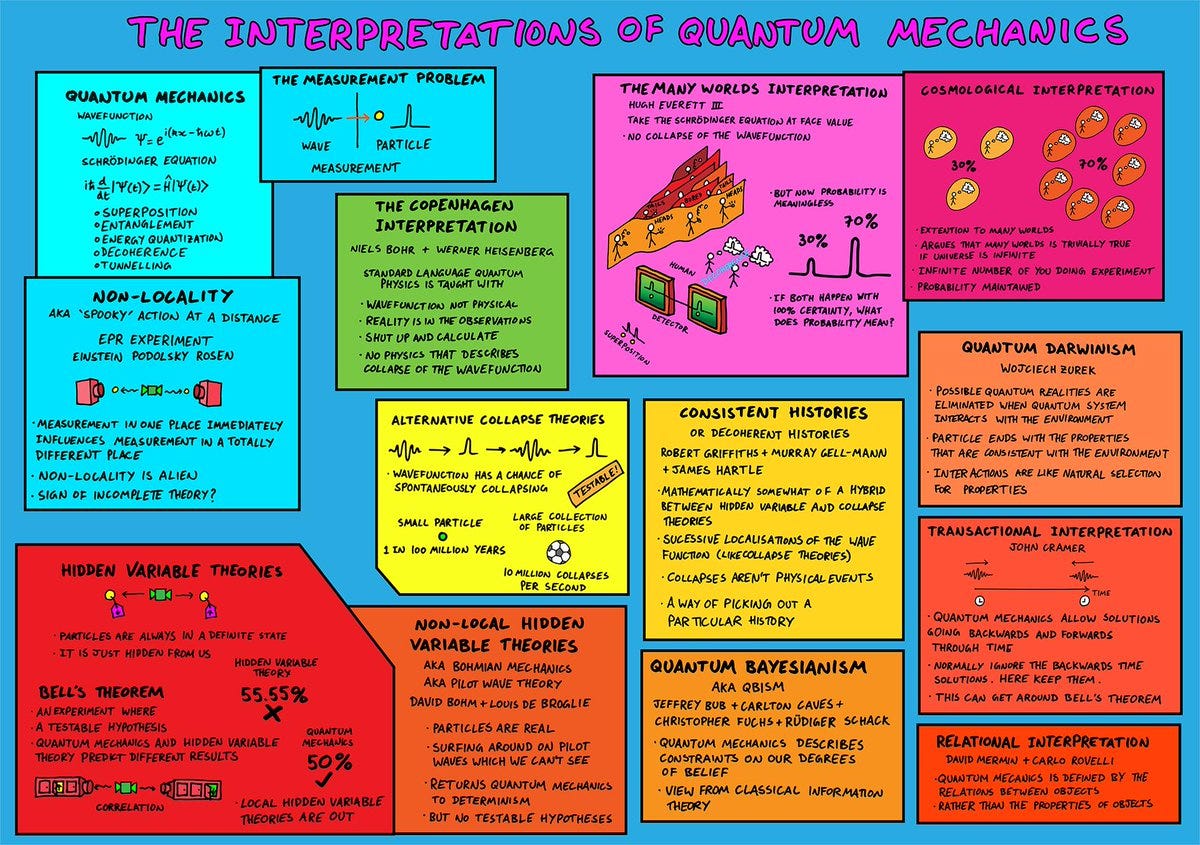 THE INTERPRETATIONS OF QUANTUM MECHANICS
QUANTUM MECHANICS
WAVEFUNCTION
Ψ=e^i(kx-ħωt)
SCHRÖDINGER EQUATION
iħ d/dt |Ψ(t)> = Ĥ|Ψ(t)>
• SUPERPOSITION
• ENTANGLEMENT
• ENERGY QUANTIZATION
• DECOHERENCE
• TUNNELLING
THE MEASUREMENT PROBLEM
WAVE PARTICLE
MEASUREMENT
NON-LOCALITY
AKA 'SPOOKY' ACTION AT A DISTANCE
EPR EXPERIMENT
EINSTEIN PODOLSKY ROSEN
• MEASUREMENT IN ONE PLACE IMMEDIATELY
INFLUENCES MEASUREMENT IN A TOTALLY
DIFFERENT PLACE
• NON-LOCALITY IS ALIEN
• SIGN OF INCOMPLETE THEORY?
THE COPENHAGEN
INTERPRETATION
NIELS BOHR + WERNER HEISENBERG
STANDARD LANGUAGE QUANTUM
PHYSICS IS TAUGHT WITH
• WAVEFUNCTION NOT PHYSICAL
• REALITY IS IN THE OBSERVATIONS
• SHUT UP AND CALCULATE
• NO PHYSICS THAT DESCRIBES
COLLAPSE OF THE WAVEFUNCTION
THE MANY WORLDS INTERPRETATION
HUGH EVERETT III
TAKE THE SCHRÖDINGER EQUATION AT FACE VALUE
• NO COLLAPSE OF THE WAVEFUNCTION
TAILS
HEADS
HEADS
TAILS
HEADS
• BUT NOW PROBABILITY IS
MEANINGLESS
30%
70%
HUMAN
DETECTOR
SUPERPOSITION
• IF BOTH HAPPEN WITH
100% CERTAINTY, WHAT
DOES PROBABILITY MEAN?
COSMOLOGICAL INTERPRETATION
30%
70%
• EXTENTION TO MANY WORLDS
• ARGUES THAT MANY WORLDS IS TRIVIALLY TRUE
IF UNIVERSE IS INFINITE
• INFINITE NUMBER OF YOU DOING EXPERIMENT
• PROBABILITY MAINTAINED
ALTERNATIVE COLLAPSE THEORIES
• WAVEFUNCTION HAS A CHANCE OF
SPONTANEOUSLY COLLAPSING
TESTABLE!
SMALL PARTICLE
1 IN 100 MILLION YEARS
LARGE COLLECTION
OF PARTICLES
10 MILLION COLLAPSES
PER SECOND
CONSISTENT HISTORIES
OR DECOHERENT HISTORIES
ROBERT GRIFFITHS + MURRAY GELL-MANN
+ JAMES HARTLE
• MATHEMATICALLY SOMEWHAT OF A HYBRID
BETWEEN HIDDEN VARIABLE AND COLLAPSE
THEORIES
• SUCESSIVE LOCALISATIONS OF THE WAVE
FUNCTION (LIKE COLLAPSE THEORIES)
• COLLAPSES AREN'T PHYSICAL EVENTS
• A WAY OF PICKING OUT A
PARTICULAR HISTORY
QUANTUM DARWINISM
WOJCIECH ZUREK
• POSSIBLE QUANTUM REALITIES ARE
ELIMINATED WHEN QUANTUM SYSTEM
INTERACTS WITH THE ENVIRONMENT
• PARTICLE ENDS WITH THE PROPERTIES
THAT ARE CONSISTENT WITH THE ENVIRONMENT
• INTERACTIONS ARE LIKE NATURAL SELECTION
FOR PROPERTIES
HIDDEN VARIABLE THEORIES
• PARTICLES ARE ALWAYS IN A DEFINITE STATE
• IT IS JUST HIDDEN FROM US
BELL'S THEOREM
• AN EXPERIMENT WHERE
A TESTABLE HYPOTHESIS
• QUANTUM MECHANICS AND HIDDEN VARIABLE
THEORY PREDICT DIFFERENT RESULTS
CORRELATION
HIDDEN VARIABLE
THEORY
55.55%
QUANTUM
MECHANICS
50%
• LOCAL HIDDEN VARIABLE
THEORIES ARE OUT
NON-LOCAL HIDDEN
VARIABLE THEORIES
AKA BOHMIAN MECHANICS
AKA PILOT WAVE THEORY
DAVID BOHM + LOUIS DE BROGLIE
• PARTICLES ARE REAL
• SURFING AROUND ON PILOT
WAVES WHICH WE CAN'T SEE
• RETURNS QUANTUM MECHANICS
TO DETERMINISM
• BUT NO TESTABLE HYPOTHESES
QUANTUM BAYESIANISM
AKA QBISM
JEFFREY BUB + CARLTON CAVES +
CHRISTOPHER FUCHS + RÜDIGER SCHACK
• QUANTUM MECHANICS DESCRIBES
CONSTRAINTS ON OUR DEGREES
OF BELIEF
• VIEW FROM CLASSICAL INFORMATION
THEORY
TRANSACTIONAL INTERPRETATION
JOHN CRAMER
TIME
• QUANTUM MECHANICS ALLOW SOLUTIONS
GOING BACKWARDS AND FORWARDS
THROUGH TIME
• NORMALLY IGNORE THE BACKWARDS TIME
SOLUTIONS. HERE KEEP THEM.
• THIS CAN GET AROUND BELL'S THEOREM
RELATIONAL INTERPRETATION
DAVID MERMIN + CARLO ROVELLI
• QUANTUM MECANICS IS DEFINED BY THE
RELATIONS BETWEEN OBJECTS
• RATHER THAN THE PROPERTIES OF OBJECTS